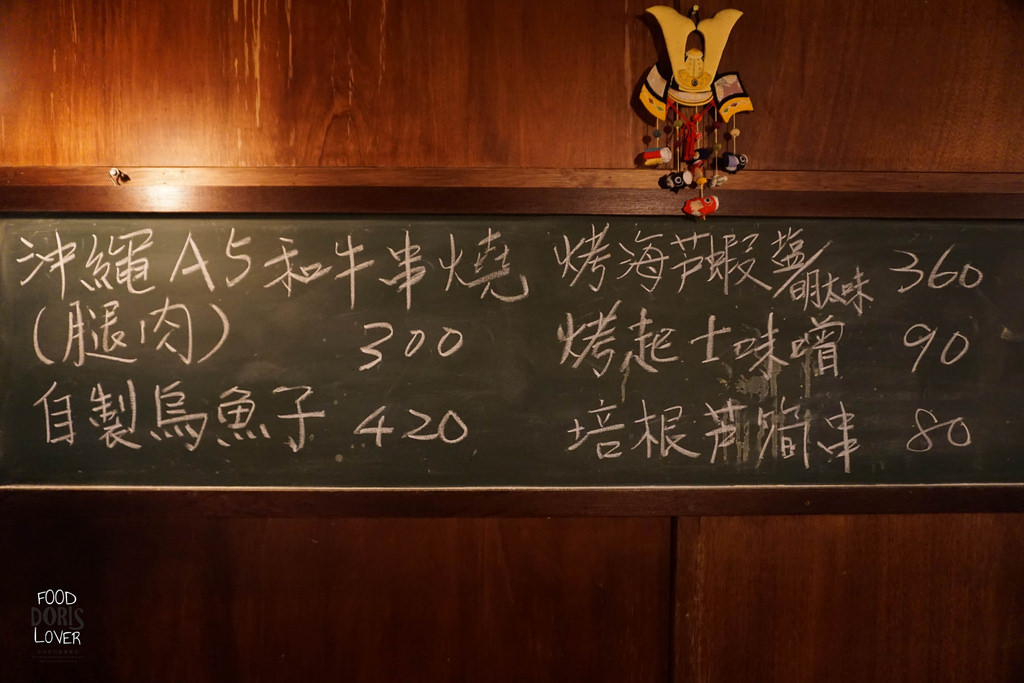 沖繩A5和牛串燒
(腿肉) 300
自製烏魚子 420
烤海芦蝦 鹽/明太味 360
烤起士味噌 90
培根芦筍串 80
FOOD
DORIS
LOVER